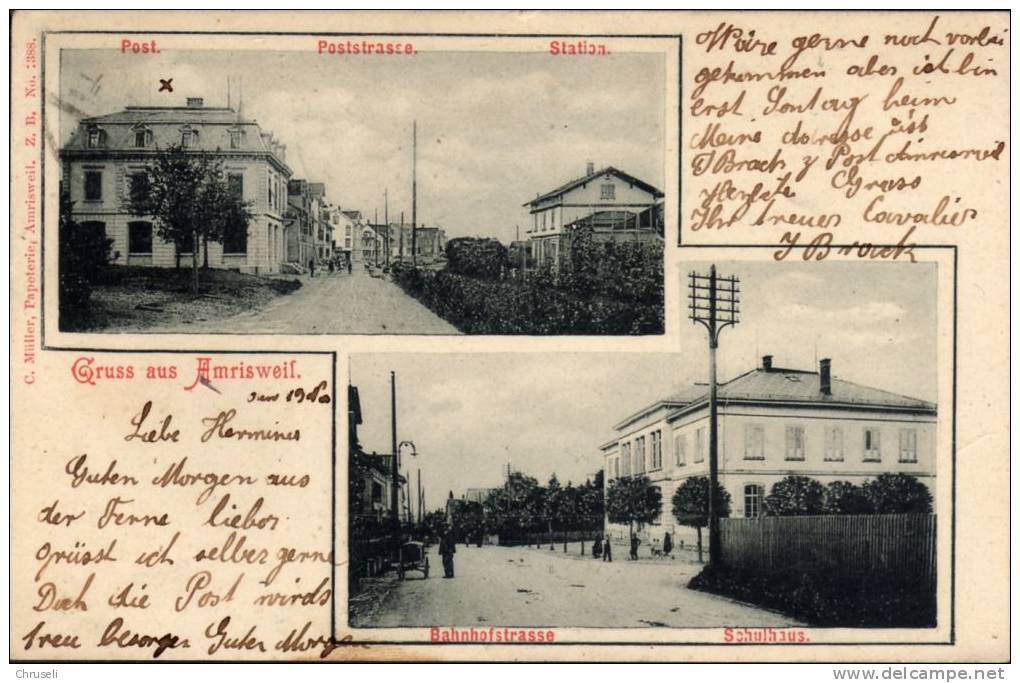 Post.
Poststrasse.
Station.
C. Müller, Papeterie, Amrisweil. Z. B. No. 1388.
Wäre gerne noch vorbei
gekommen aber ich bin
erst Sontag heim
Meine adresse ist
J Brack z Post Amrisweil
Gruss
Ihr treues Cavalier
J Brack
Gruss aus Amrisweil.
Liebe Hermine
Guten Morgen aus
der Ferne liebes
grüsst ich selber gerne
Doch die Post wirds
treu besorgen Guten Morgen
Bahnhofstrasse
Schulhaus.
Chruseli
http://www.delcampe.net